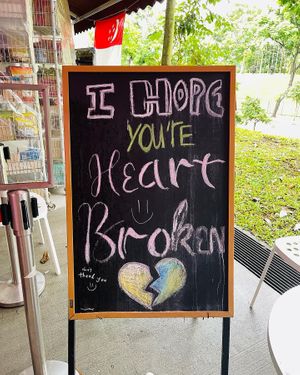 I HOPE
YOU'RE
Heart
Broken
thank you